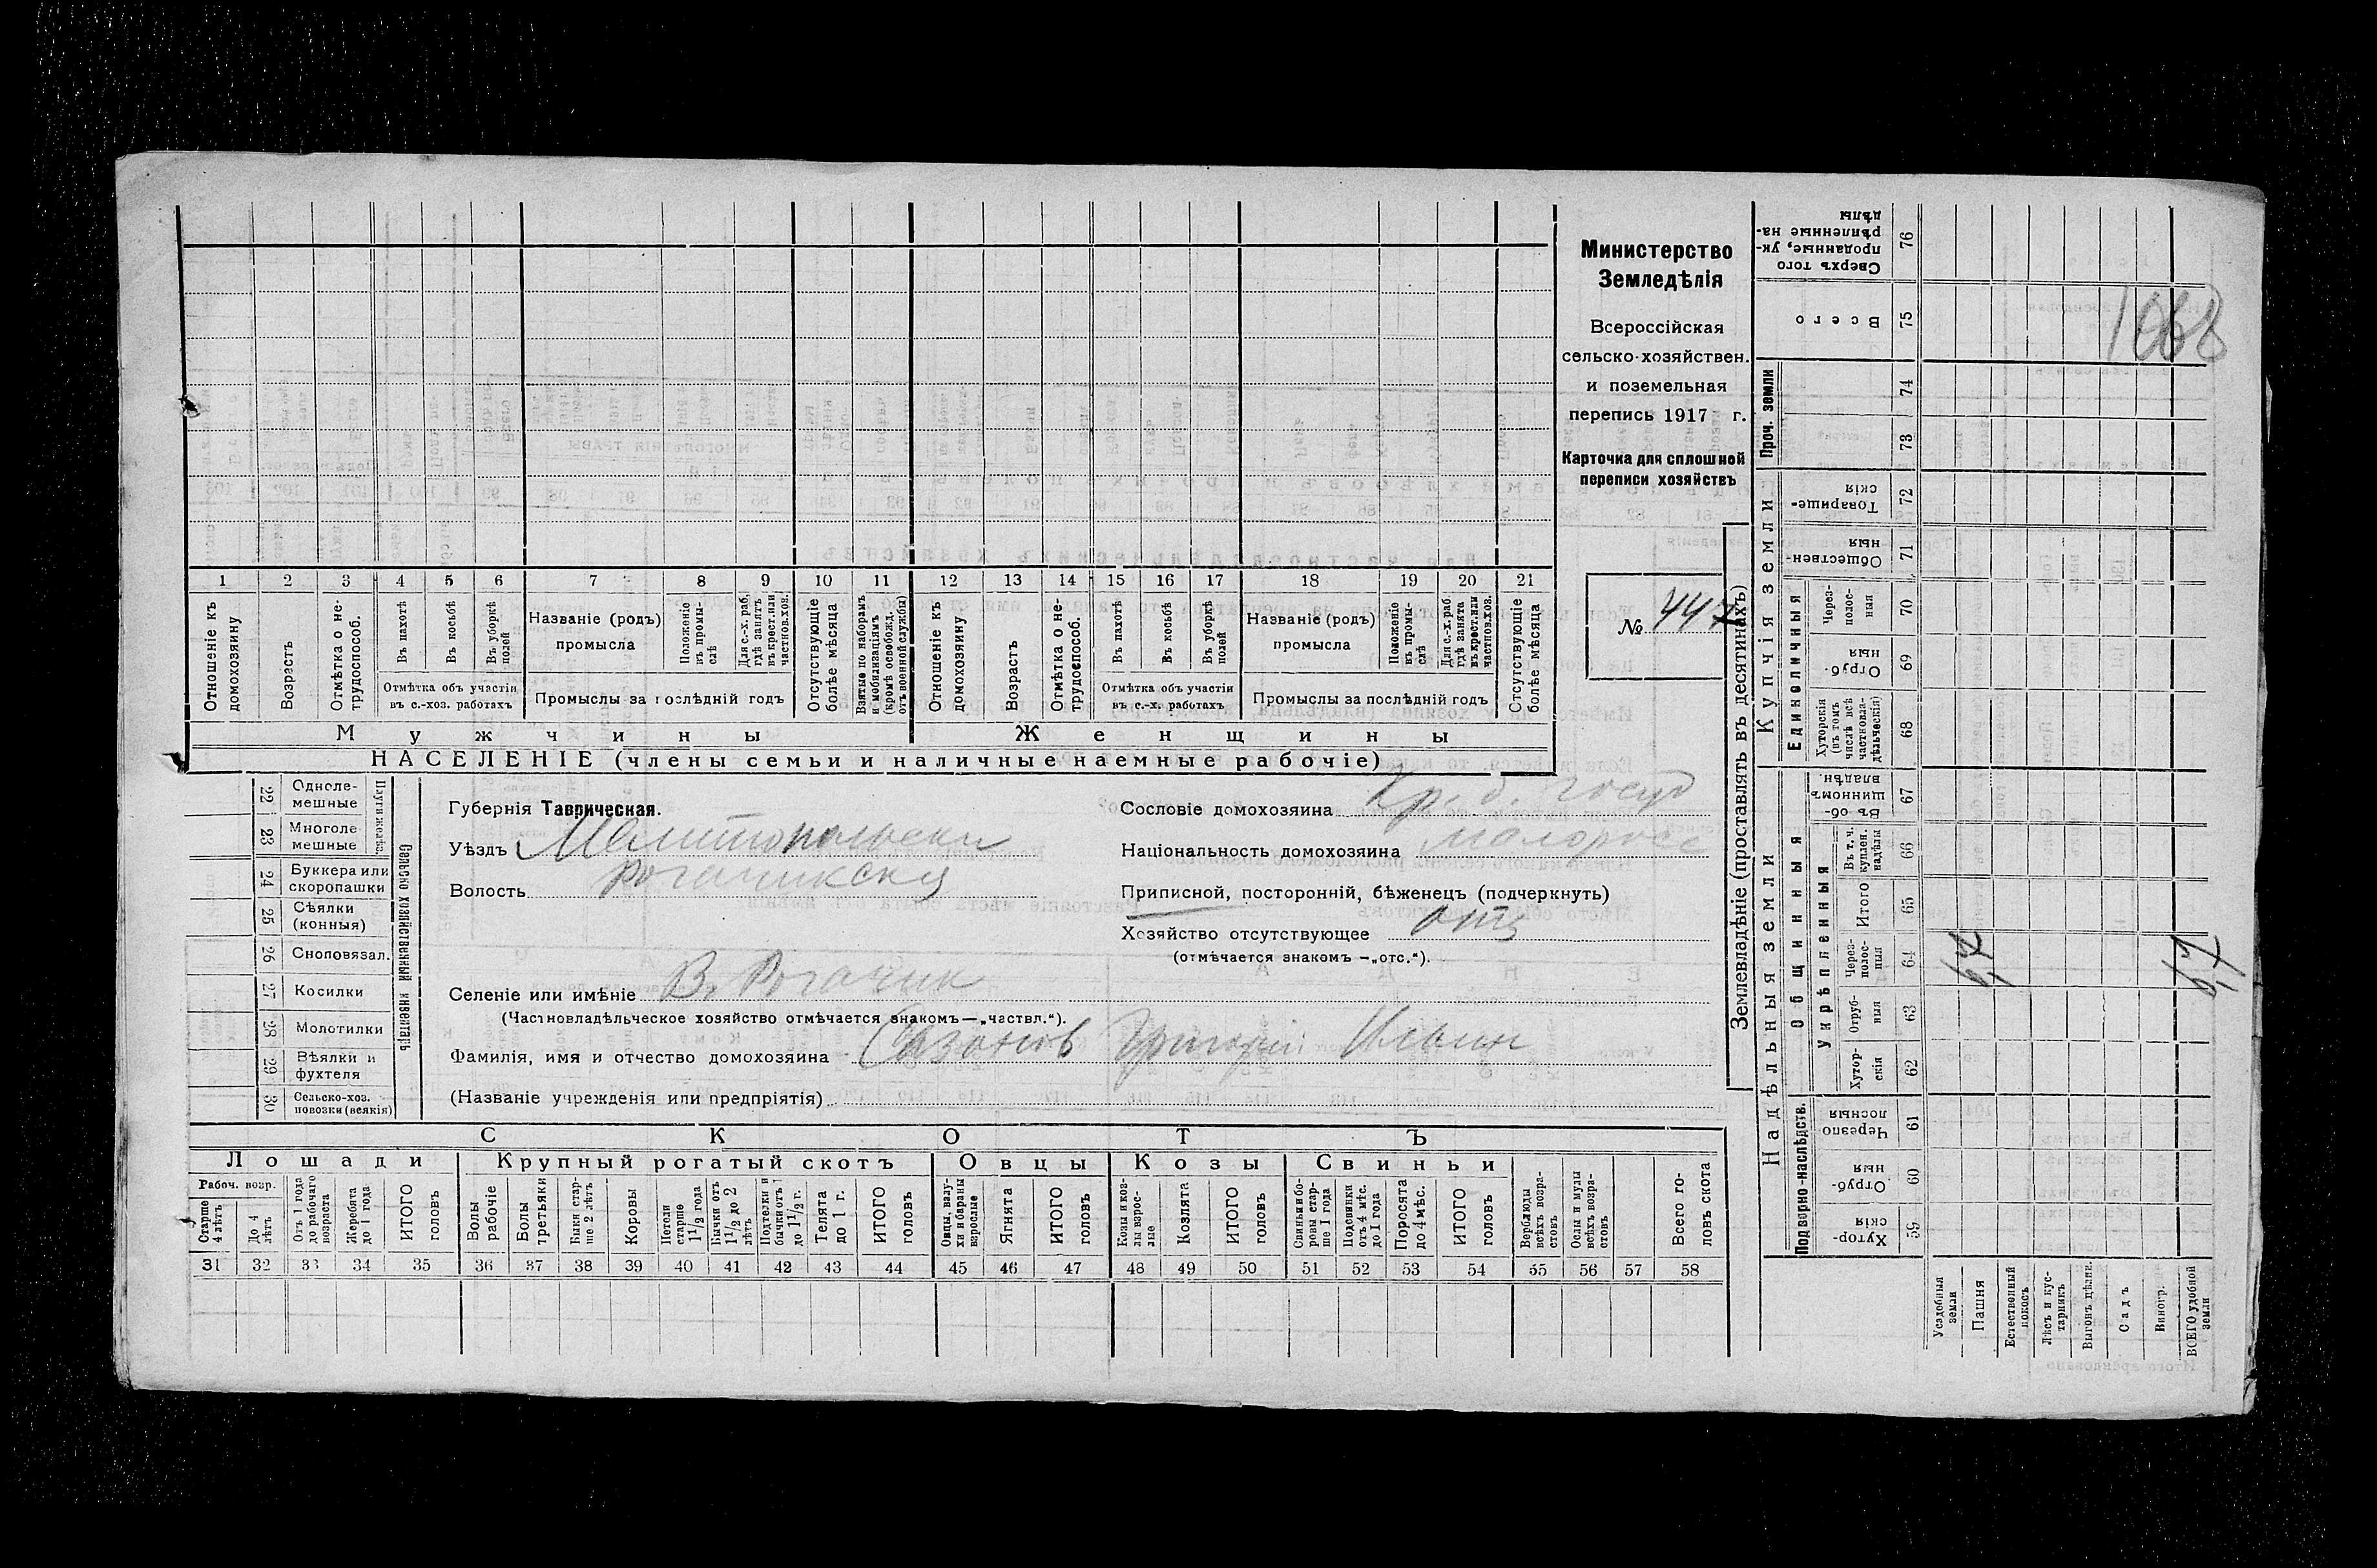 Министерство
Земледѣлія
Всероссійская
сельско-хозяйствен.
и поземельная
перепись 1917 г.
Карточка для сплошной
переписи хозяйствъ
№ 447
1068
1 2 3 4 5 6 7 8 9 10 11 12 13 14 15 16 17 18 19 20 21
Отношеніе къ домохозяину
Возрастъ
Отмѣтка о не-трудоспособ.
Въ пахотѣ
Въ косьбѣ
Въ уборкѣ полей
Отмѣтка объ участіи въ с.-хоз. работахъ
Названіе (родъ) промысла
Положеніе въ промы-слѣ
Для с.-х. раб. гдѣ занятъ въ крест. или частнов. хоз.
Промыслы за послѣдній годъ
Отсутствующіе болѣе мѣсяца
Взятые по наборамъ и мобилизаціямъ (кромѣ освобожд. отъ военной службы)
Отношеніе къ домохозяину
Возрастъ
Отмѣтка о не-трудоспособ.
Въ пахотѣ
Въ косьбѣ
Въ уборкѣ полей
Отмѣтка объ участіи въ с.-х. работахъ
Названіе (родъ) промысла
Положеніе въ промы-слѣ
Для с.-х. раб. гдѣ занята въ крест. или частнов. хоз.
Промыслы за послѣдній годъ
Отсутствующіе болѣе мѣсяца
Мужчины Женщины
НАСЕЛЕНІЕ (члены семьи и наличные наемные рабочіе)
22 Одноле-мешные
23 Многоле-мешные
Плуги желѣз.
24 Буккера или скоропашки
25 Сѣялки (конныя)
26 Сноповязал.
27 Косилки
28 Молотилки
29 Вѣялки и фухтеля
30 Сельско-хоз. повозки (всякія)
Сельско хозяйственный инвентарь
Губернія Таврическая.
Уѣздъ Мелитопольски
Волость Рогачикская
Селеніе или имѣніе В. Рогачик
(Частновладѣльческое хозяйство отмѣчается знакомъ—„частвл.“).
Фамилія, имя и отчество домохозяина Сазонов Григорій Ильин
(Названіе учрежденія или предпріятія)
Сословіе домохозяина Кр. б. госуд
Національность домохозяина малоросс
Приписной, посторонній, бѣженецъ (подчеркнуть)
Хозяйство отсутствующее отс
(отмѣчается знакомъ —„отс.“).
СКОТЪ
Лошади Крупный рогатый скотъ Овцы Козы Свиньи
Рабоч. возр.
Старше 4 лѣтъ
До 4 лѣтъ
Отъ 1 года до рабочаго возраста
Жеребята до 1 года
ИТОГО головъ
Волы рабочіе
Волы третьяки
Быки стар-ше 2 лѣтъ
Коровы
Нетели старше 1½ года
Бычки отъ 1½ до 2 лѣтъ
Подтелки и бычки отъ 1 до 1½ г.
Телята до 1 г.
ИТОГО головъ
Овцы, валу-хи и бараны взрослые
Ягнята
ИТОГО головъ
Козы и коз-лы взрос-лые
Козлята
ИТОГО головъ
Свиньи и бо-ровы стар-ше 1 года
Подсвинки отъ 4 мѣс. до 1 года
Поросята до 4 мѣс.
ИТОГО головъ
Верблюды всѣхъ возра-стовъ
Ослы и мулы всѣхъ возра-стовъ
Всего го-ловъ скота
31 32 33 34 35 36 37 38 39 40 41 42 43 44 45 46 47 48 49 50 51 52 53 54 55 56 57 58
Землевладѣніе (проставлять въ десятинахъ)
Сверхъ того проданные, ук-рѣпленные на-дѣлы 76
Всего 75
Проч. земли
74
73
Купчія земли
Товарище-скія 72
Обществен-ныя 71
Единоличныя
Через-полос-ныя 70
Отруб-ныя 69
Хуторскія (въ томъ числѣ всѣ частновла-дѣльческія) 68
Надѣльныя земли
Общинныя
Въ об-щинномъ владѣн. 67
Укрѣпленныя
Въ т. ч. куплен. надѣлы 66
Итого 65
Через-полос-ныя 64
Отруб-ныя 63
Хутор-скія 62
Подворно-наслѣдств.
Черезпо лосныя 61
Отруб-ныя 60
Хутор-скія 59
Усадебныя земли
Пашня
Естественный покосъ
Лѣсъ и кус-тарникъ
Выгонъ цѣлин.
Садъ
Виногр.
ВСЕГО удобной земли